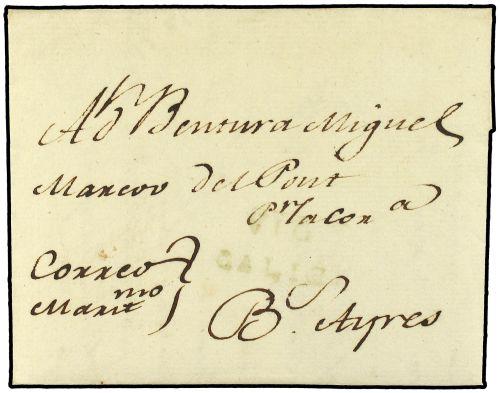 A D.n Bentura Miguel
Marcoo del Pont
P.r la Cor.a
Correo
Marit.mo
B.s Ayres